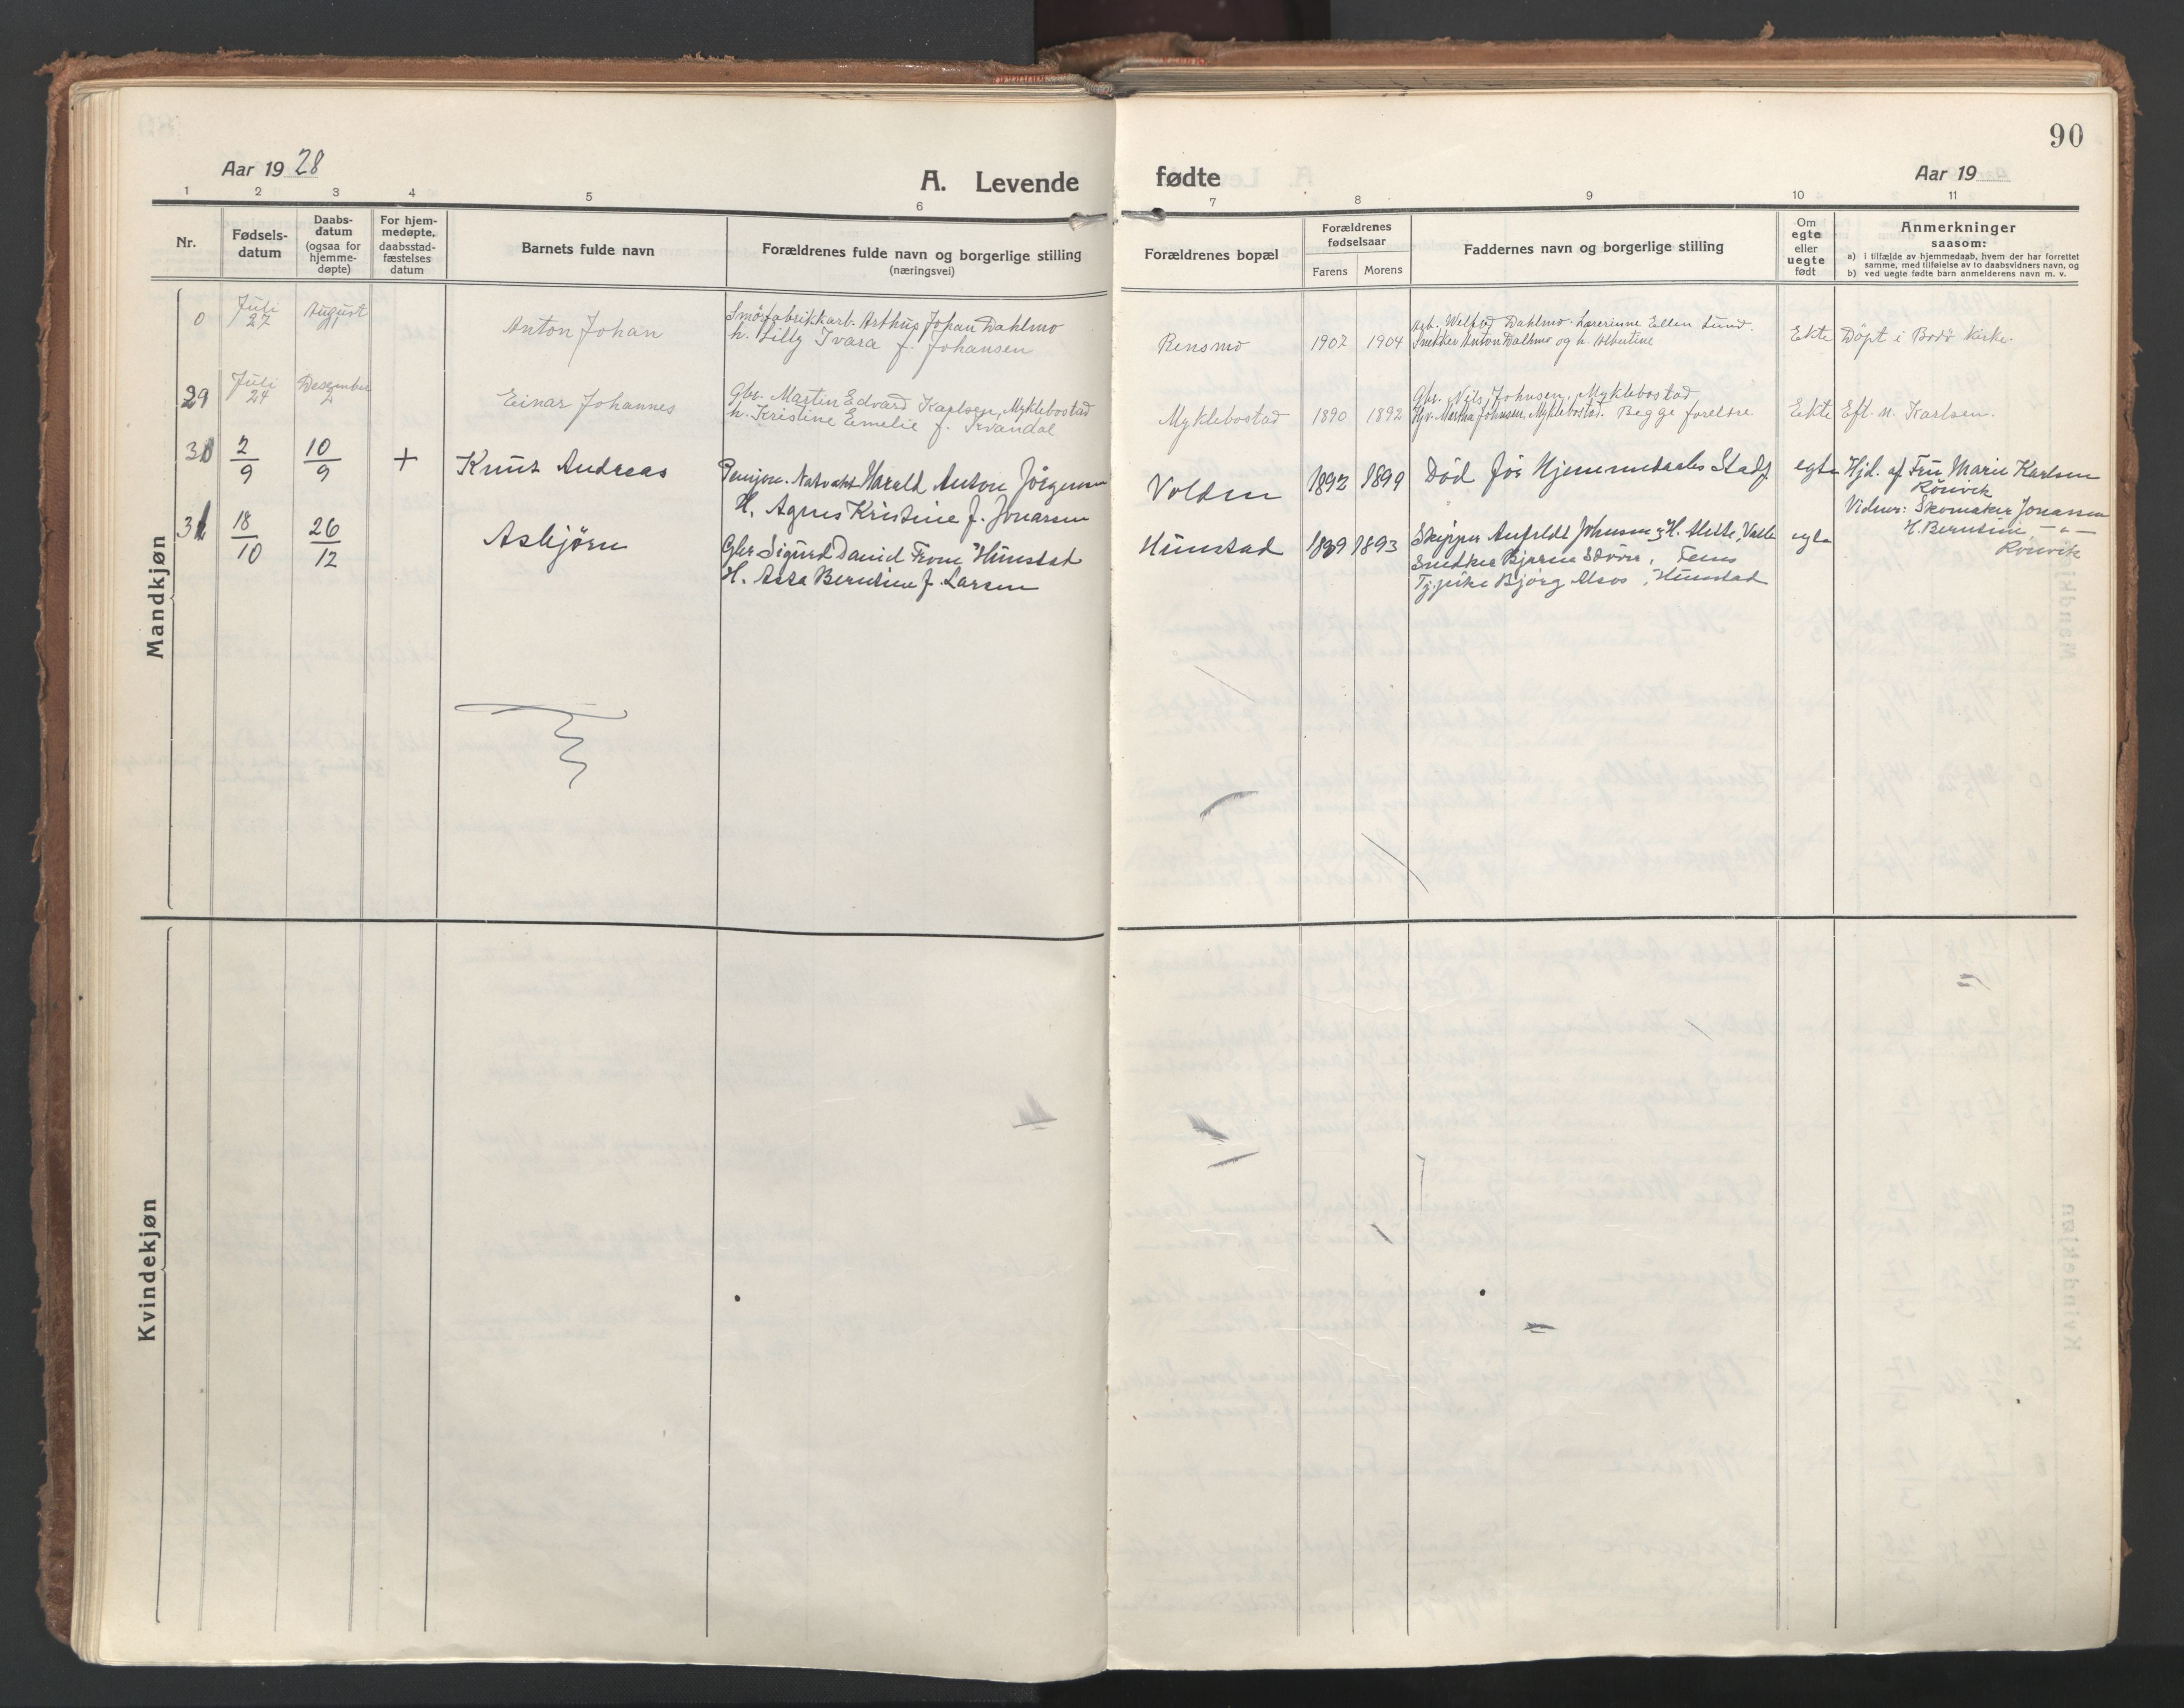 90
Aar 1928
A. Levende
fødte
Aar 19
1 2 3 4 5 6 7 8 9 10 11
Nr.
Fødsels-
datum
Daabs-
datum
(ogsaa for
hjemme-
døpte)
For hjem-
medøpte,
daabsstad-
fæstelses
datum
Barnets fulde navn
Forældrenes fulde navn og borgerlige stilling
(næringsvei)
Forældrenes bopæl
Forældrenes
fødselsaar
Farens Morens
Faddernes navn og borgerlige stilling
Om
egte
eller
uegte
født
Anmerkninger
saasom:
a) i tilfælde av hjemmedaab, hvem der har forrettet
samme, med tilføielse av to daabsvidners navn, og
b) ved uegte fødte barn anmelderens navn m. v.
Mandkjøn
0
Juli
27
August
Anton Johan
Smörfabrikkarb. Arthur Johan Dahlmo
h. Lilly Ivara f. Johansen
Rensmo
1902 1904
Arb. Dahlmo. Lærerinne Ellen Lund.
Snekker Anton Dalhmo og h. Albertine
Ekte
Döpt i Bodö kirke.
29
Juli
24
Desember
2
Einar Johannes
Gbr. Martin Edvard Karlsen, Myklebostad
h. Kristine Emelie f. Kvandal
Myklebostad
1890 1892
Gbr. Nils Johnsen, Myklebostad
Hv. Martha Johnsen, Myklebostad. Begge foreldre
Ekte
Eft. n. Karlsen.
30
2/9
10/9
+
Knut Andreas
Pensjon. Natvakt Harald Anton Jörgensen
H. Agnes Kristine f. Jonassen
Volden
1892 1899
Död för Hjemmedaabs Stadf.
egte
Hjd. af Fru Marie Karlsen
Rönvik
Vidner: Skomaker Jonassen
H. Berntine — " —
Rönvik
31
18/10
26/12
Asbjørn
Gbr Sigurd David From Hunstad
H. Asta Berntine f. Larsen
Hunstad
1889 1893
Skipper Anfeldt Johnsen & H. Mette, Valle
Snedker Bjarne Støver,
Tj.pike Bjørg Alsos, Hunstad
egte
Kvindekjøn